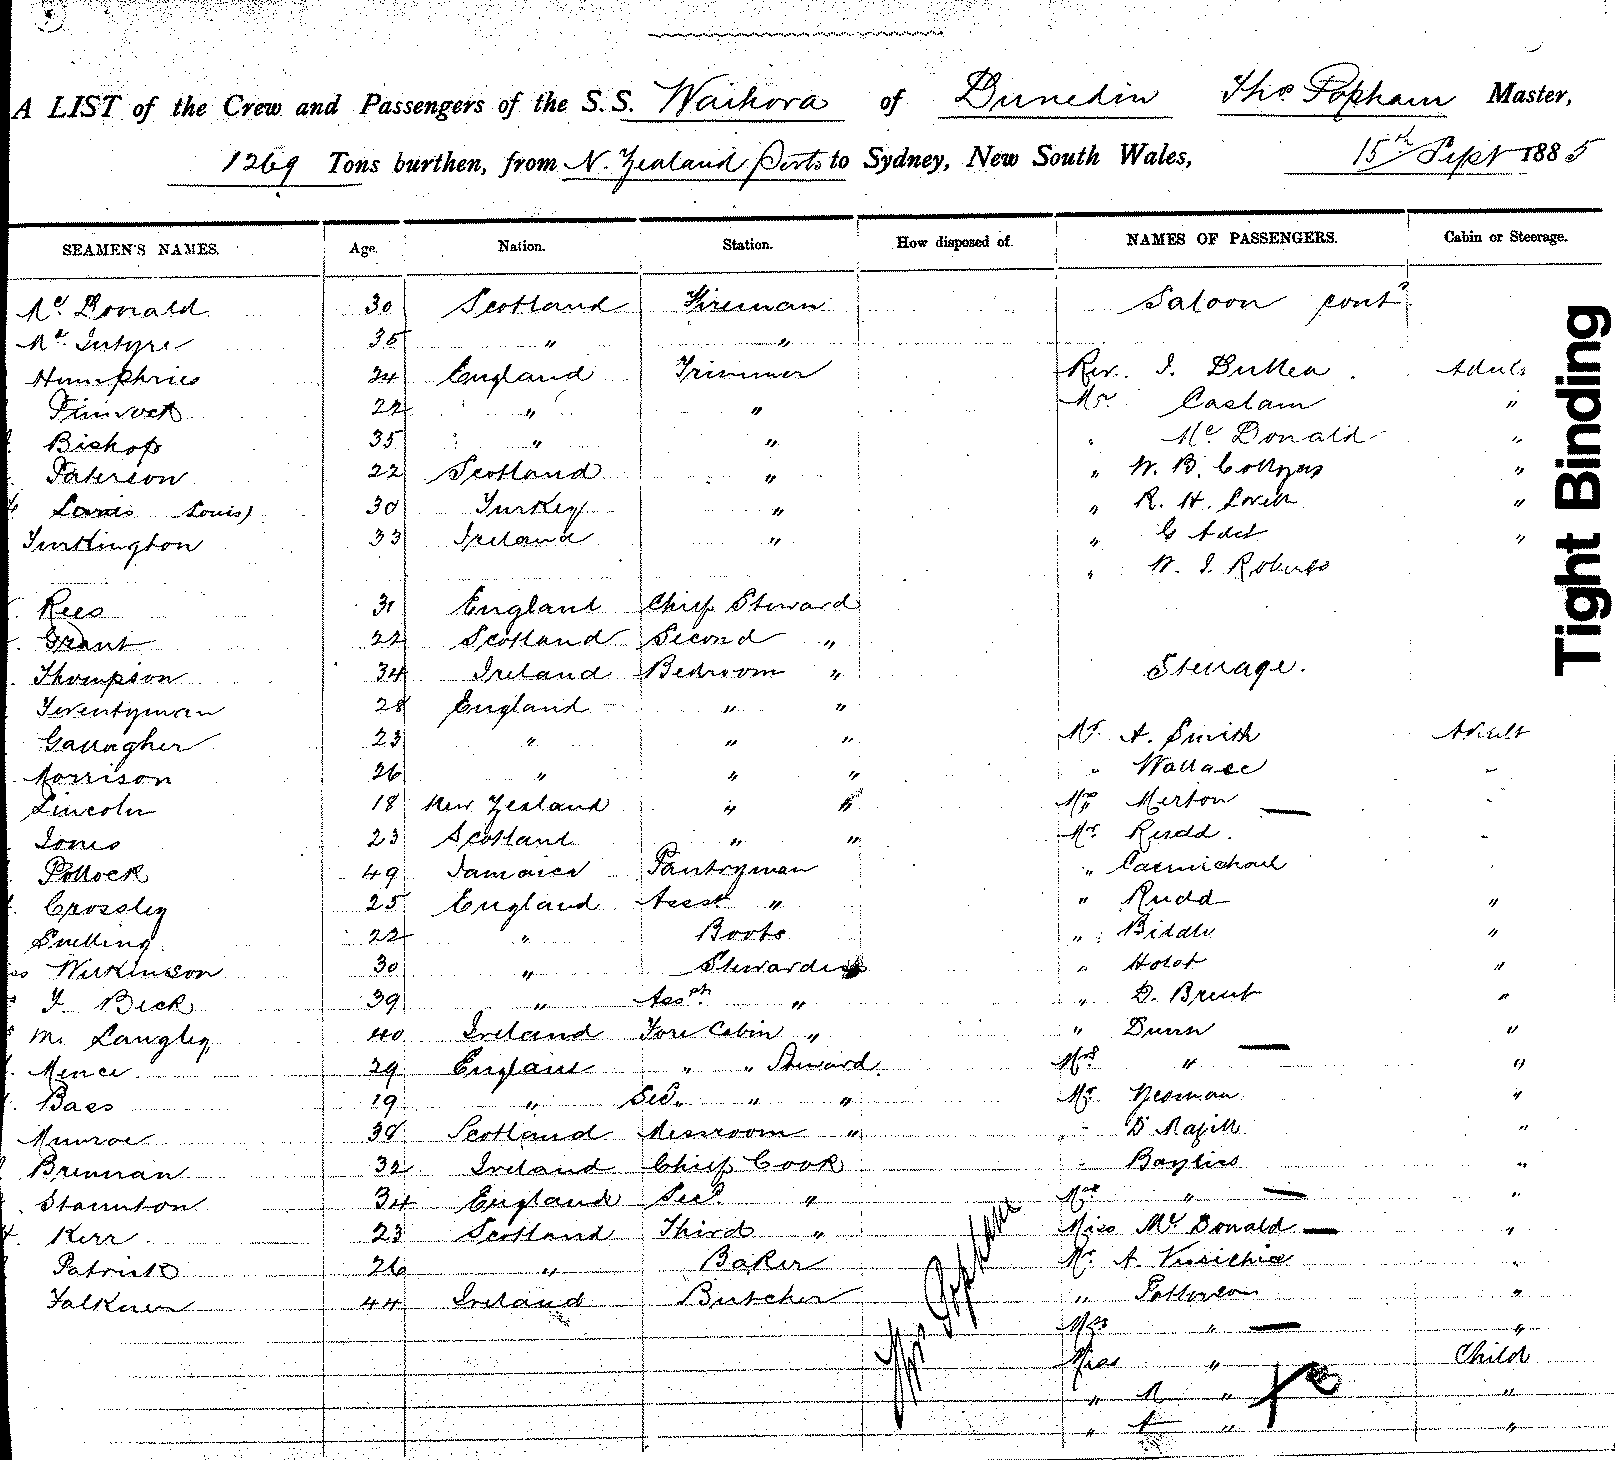 A LIST of the Crew and Passengers of the S.S. Waihora of Dunedin Thos Popham Master,
1269 Tons burthen, from N. Zealand Ports to Sydney, New South Wales, 15th Sept 1885
SEAMEN'S NAMES. Age. Nation. Station. How disposed of. NAMES OF PASSENGERS. Cabin or Steerage.
Mc Donald 30 Scotland Fireman Saloon contd
Mc Intyre 35 " "
Humphries 24 England Trimmer Rev. I. Adult
22 " " Mr Caslam "
Bishop 35 " " Mc Donald "
Paterson 22 Scotland " " W. B. "
Louis Louis) 30 Turkey " " R. H. "
Turkington 33 Ireland " " "
" W. J. Roberts
Rees 31 England Chief Steward
Grant 22 Scotland Second "
Thompson 34 Ireland Bedroom " Steerage.
Twentyman 28 England " "
Gallagher 23 " " " Mr A. Smith Adult
Morrison 26 " " " " Wallace "
Lincoln 18 New Zealand " " Mrs Merton "
Jones 23 Scotland " " Mr Rudd "
Pollock 49 Jamaica Pantryman " Carmichael
Crossley 25 England Asst " " Rudd "
Snelling 22 " Boots " Biddle "
Wilkinson 30 " Stewardess " "
J Beck 39 " Asst " " D. Brent "
M. Langley 40 Ireland Fore Cabin " " Dunn "
Mence 29 England " " Steward Mrs " "
Bass 19 " Sec. " " Mr Yeoman "
Munroe 38 Scotland Messroom " " D Magill "
Brennan 32 Ireland Chief Cook " Bayliss "
Staunton 34 England Sec. " Mrs " "
Kerr 23 Scotland Third " Miss Mc Donald "
Patrick 26 " Baker Mr A. "
Falkner 44 Ireland Butcher " Patterson "
Mrs " "
Miss " Child
" M " "
" A " "
Thos Popham
Tight Binding